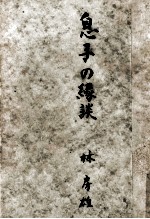 息子の縁談
林房雄